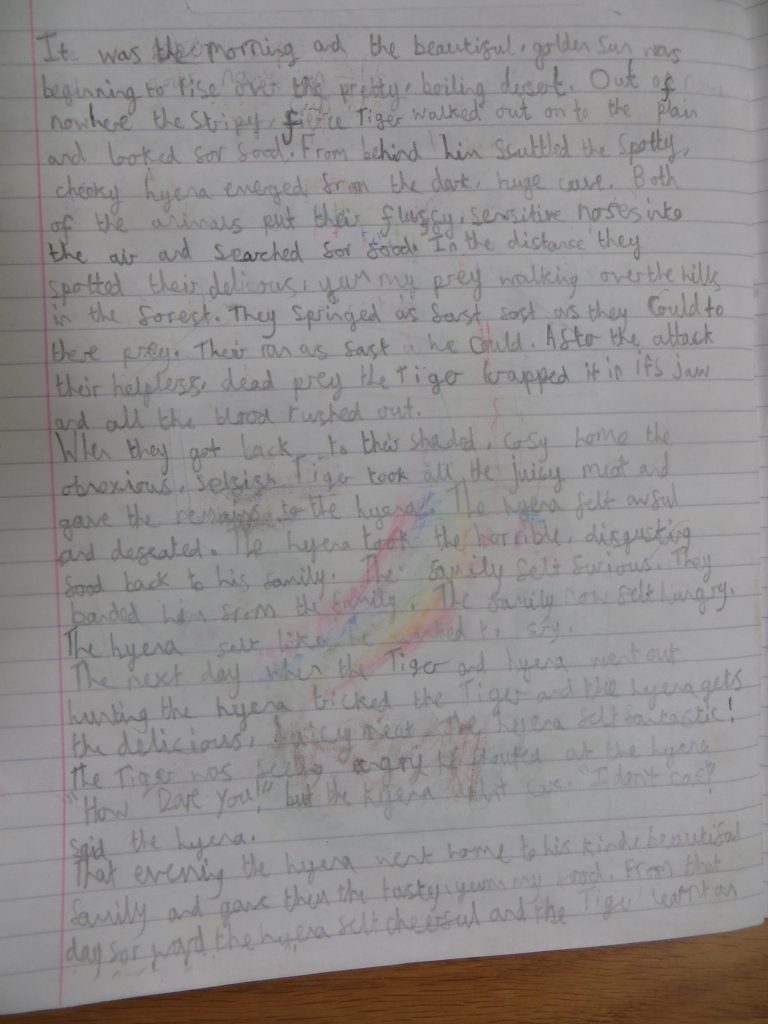 It was the morning and the beautiful, golden sun was
beginning to rise over the pretty, boiling desert. Out of
nowhere the stripy, fierce Tiger walked out on to the plain
and looked for food. From behind him scuttled the spotty,
cheeky hyena emerged from the dark, huge cave. Both
of the animals put their fluffy, sensitive noses into
the air and searched for food. In the distance they
spotted their delicous, yummy prey walking over the hills
in the forest. They springed as fast fast as they could to
there prey. Their ran as fast he could. After the attack
their helpless, dead prey the Tiger wrapped it in it's jaw
and all the blood rushed out.
When they got back to their shaded, cosy home the
obnoxious, selfish Tiger took all the juicy meat and
gave the remains to the hyena. The hyena felt awful
and defeated. The hyena took the horrible, disgusting
food back to his family. The family felt furious. They
banded him from the family. The family now felt hungry.
The hyena felt like he wanted to cry.
The next day when the Tiger and hyena went out
hunting the hyena tricked the Tiger and the hyena gets
the delicious, juicy meat. The hyena felt fantastic!
The Tiger was angry he shouted at the hyena
"How Dare you!" but the hyena didn't care. "I don't care"
said the hyena.
That evening the hyena went home to his kind, beautiful
family and gave them the tasty, yummy food. From that
day forward the hyena felt cheerful and the Tiger learnt an